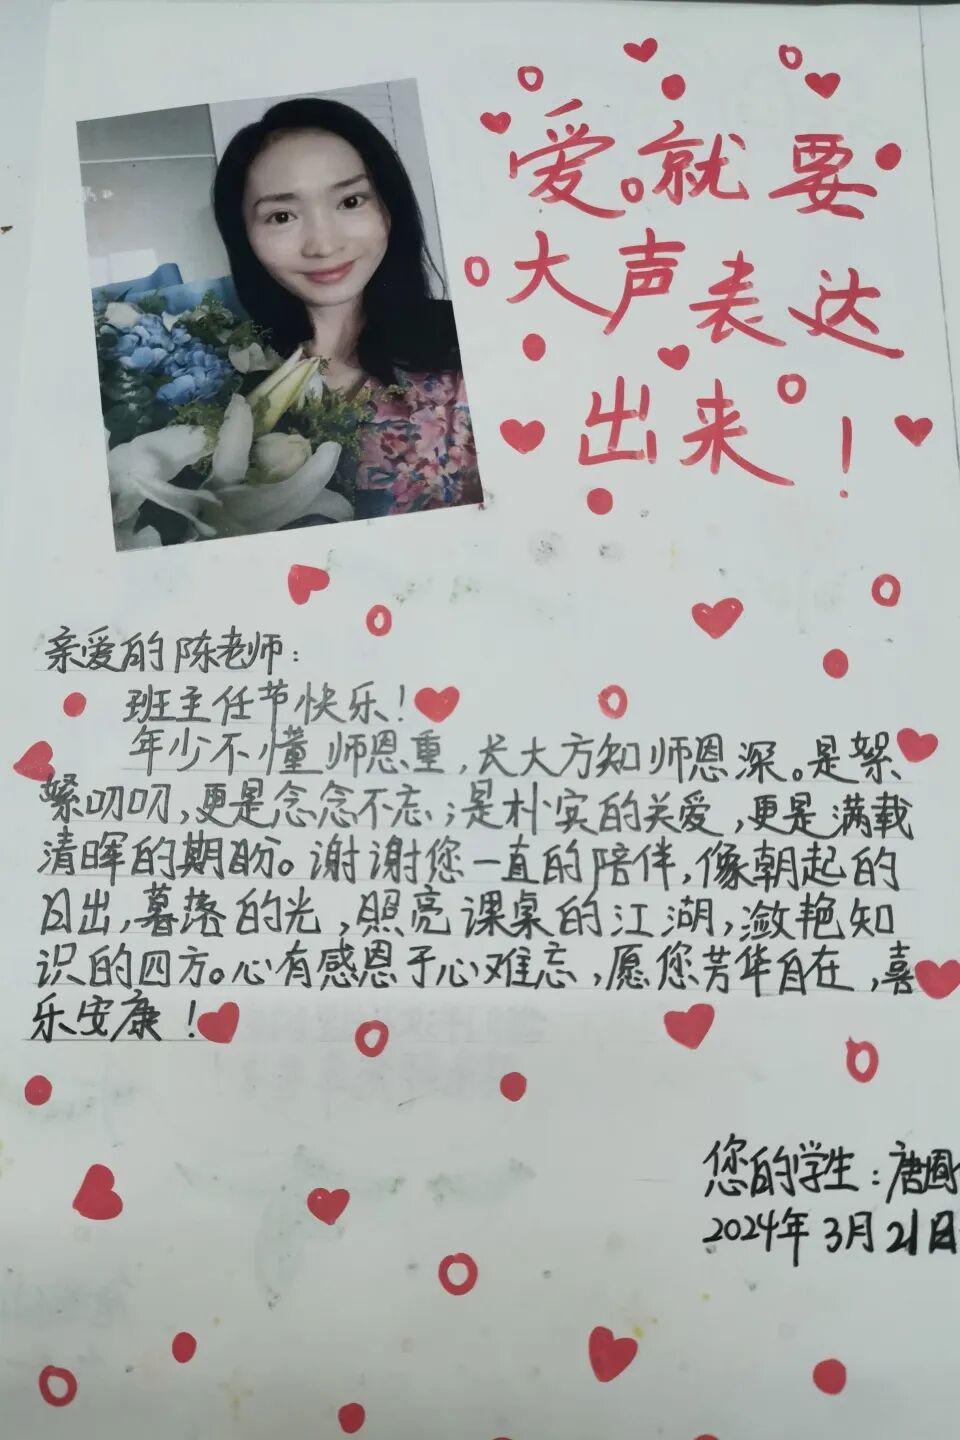 爱就要
大声表达
出来！
亲爱的陈老师：
班主任节快乐！
年少不懂师恩重，长大方知师恩深。是絮
絮叨叨，更是念念不忘；是朴实的关爱，更是满载
清晖的期盼。谢谢您一直的陪伴，像朝起的
日出，暮落的光，照亮课桌的江湖，潋艳知
识的四方。心有感恩于心难忘，愿您芳华自在，喜
乐安康！
您的学生：唐
2024年3月21日